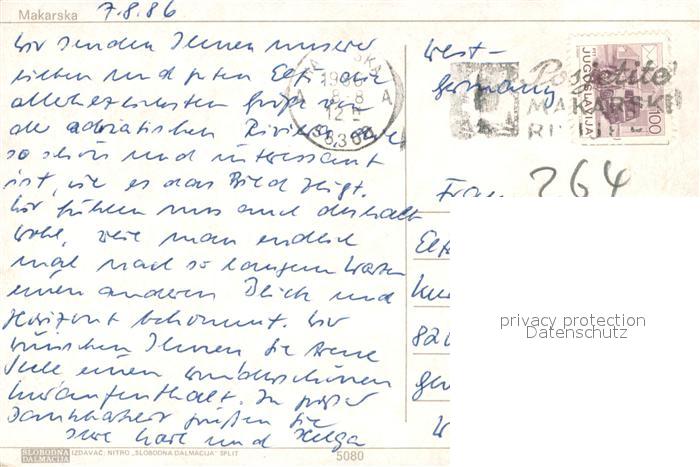 Makarska 7.8.86
Wir senden Ihnen unserer
lieben und guten Elfi die
allerherzlichsten Grüße von
der adriatischen Riviera, die
so schön und interessant
ist, wie es das Bild zeigt.
Wir fühlen uns auch deshalb
wohl, weil man endlich
mal nach so langem Warten
einen anderen Blick und
Horizont bekommt. Wir
wünschen Ihnen, die treue
Seele einen wunderschönen
Kuraufenthalt. In großer
Dankbarkeit grüßen Sie
Ihre Karl und Helga
West-
Germany
Posjetite
MAKARSKU
JUGOSLAVIJA
100
Frau
264
privacy protection
Datenschutz
SLOBODNA
DALMACIJA
IZDAVAČ: NITRO „SLOBODNA DALMACIJA" SPLIT
5080